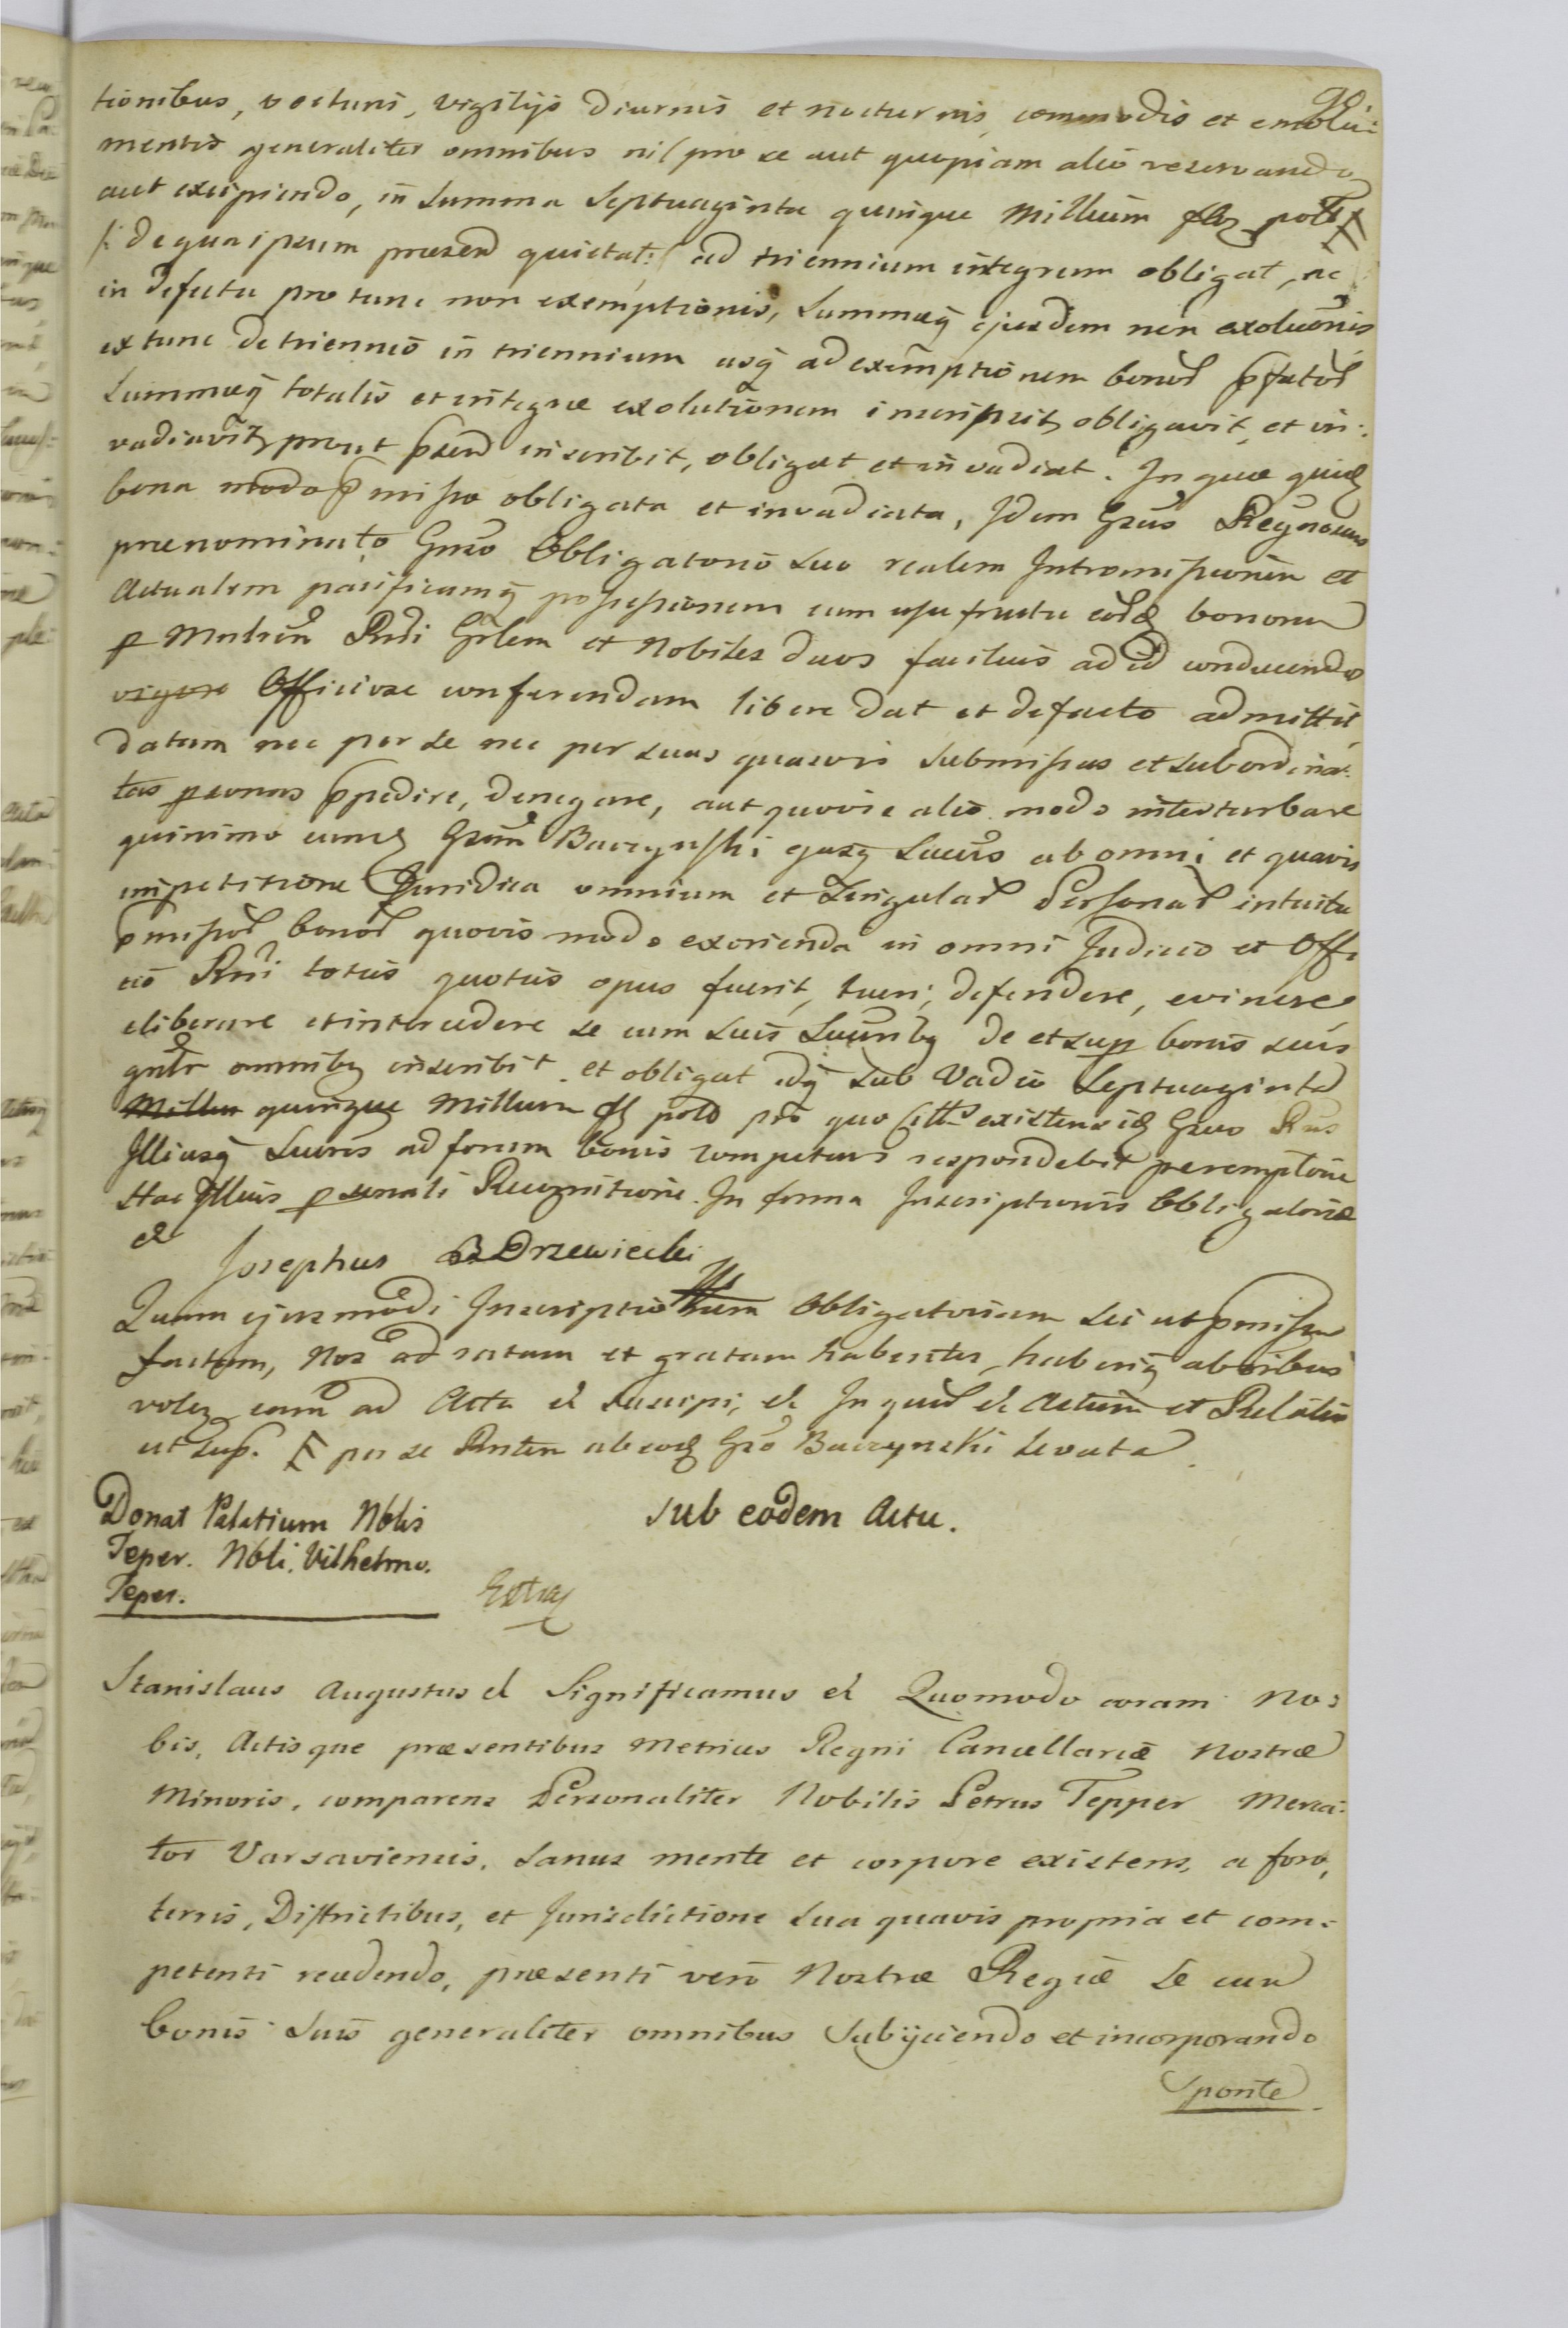 90
tionibus, vecturis, vigilijs diurnis et nocturnis, commodis et emolu:
mentis generaliter omnibus nil pro se aut quopiam alio reservando
aut excipiendo, in Summa Septuaginta quinque Millium flor polo
/: de qua ipsum præsen quietat :/ ad triennium integrum obligat, ac
in defectu pro tunc non exemptionis, Summæq ejusdem non exolutionis
ex tunc de triennio in triennium usq ad exemptionem bonor pfator
Summæq totalis et integræ exolutionem inscripsit, obligavit, et in:
vadiavit, prout præsen inscribit, obligat et invadiat. In quæ quid
bona modo pmisso obligata et invadiata, Idem Gsus Recognoscens
prænominato Gnso Obligatorio suo realem Intromissionem et
Actualem pacificamq possessionem cum usufructu eord bonorum
p Ministm Rni Gnlem et Nobiles duos facilius ad id conducendo
vigore Officiose conferendam libere dat et defacto admittit,
datam nec per se nec per suas quasvis submissas et subordina:
tas psonas ppedire, denegare, aut quovis alio modo interturbare
quinimo eund Gsum Baczynski ejusq Succrs ab omni et quavis
impetitione Juridica omnium et Singular Personar intuitu
pmissor bonor quovis modo exorienda in omni Judicio et Offi
cio Rni toties quoties opus fuerit, tueri, defendere, evincere
eliberare et intercedere se cum suis Succribq de et sup bonis suis
gnlr omnibq inscribit et obligat idq sub Vadio Septuaginta
Millium quinque Millium fl polo pro quo citts existens id Gsus Rns
Illiusq Succrs ad forum bonis competens respondebit peremptorie
Hac Illius psonali Recognitione. In forma Inscriptionis Obligatoriæ
et
Josephus B Drzewiecki
Quam ejusmodi Inscriptionem Obligatoriam sic ut pmissum
factam, Nos ad ratam et gratam habentes, haberiq ab oibus
volen eam ad Acta et suscipi, et In quor et Actum et Relatio
ut Sup. per se Rnten ab eod Gso Baczynski levata.
Donat Palatium Noblis
Teper. Nobli. Vilhelmo.
Teper.
sub eodem Actu.
Extra
Stanislaus Augustus et Significamus et Quomodo coram No:
bis, Actisque præsentibus Metrices Regni Cancellariæ Nostræ
Minoris, comparens Personaliter Nobilis Petrus Tepper Merca:
tor Varsaviensis, Sanus mente et corpore existens, a foro,
terris, Districtibus, et Jurisdictione sua quavis propria et com:
petenti recedendo, præsenti vero Nostræ Regiæ Se cum
bonis suis generaliter omnibus subijciendo et incorporando
Sponte